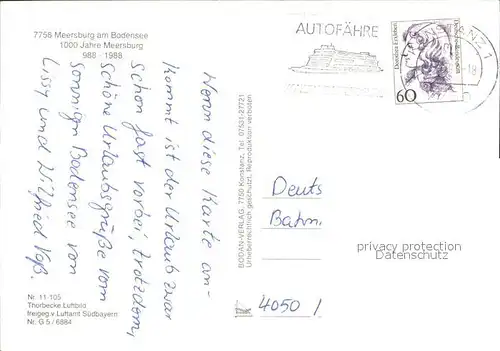 7758 Meersburg am Bodensee
1000 Jahre Meersburg
988 - 1988
Wenn diese Karte an-
kommt ist der Urlaub zwar
schon fast vorbei, trotzdem,
schöne Urlaubsgrüße vom
sonnigen Bodensee von
Lissy und Wilfried Voß.
Nr. 11-105
Thorbecke Luftbild
freigeg. v. Luftamt Südbayern
Nr. G 5 / 6884
BODAN-VERLAG, 7750 Konstanz, Tel. 07531-27721
Urheberrechtlich geschützt, Reproduktion verboten
AUTOFÄHRE
KONSTANZ 1
60
Deutsche Bundespost
Deuts
Bahn.
privacy protection
Datenschutz
4050 /